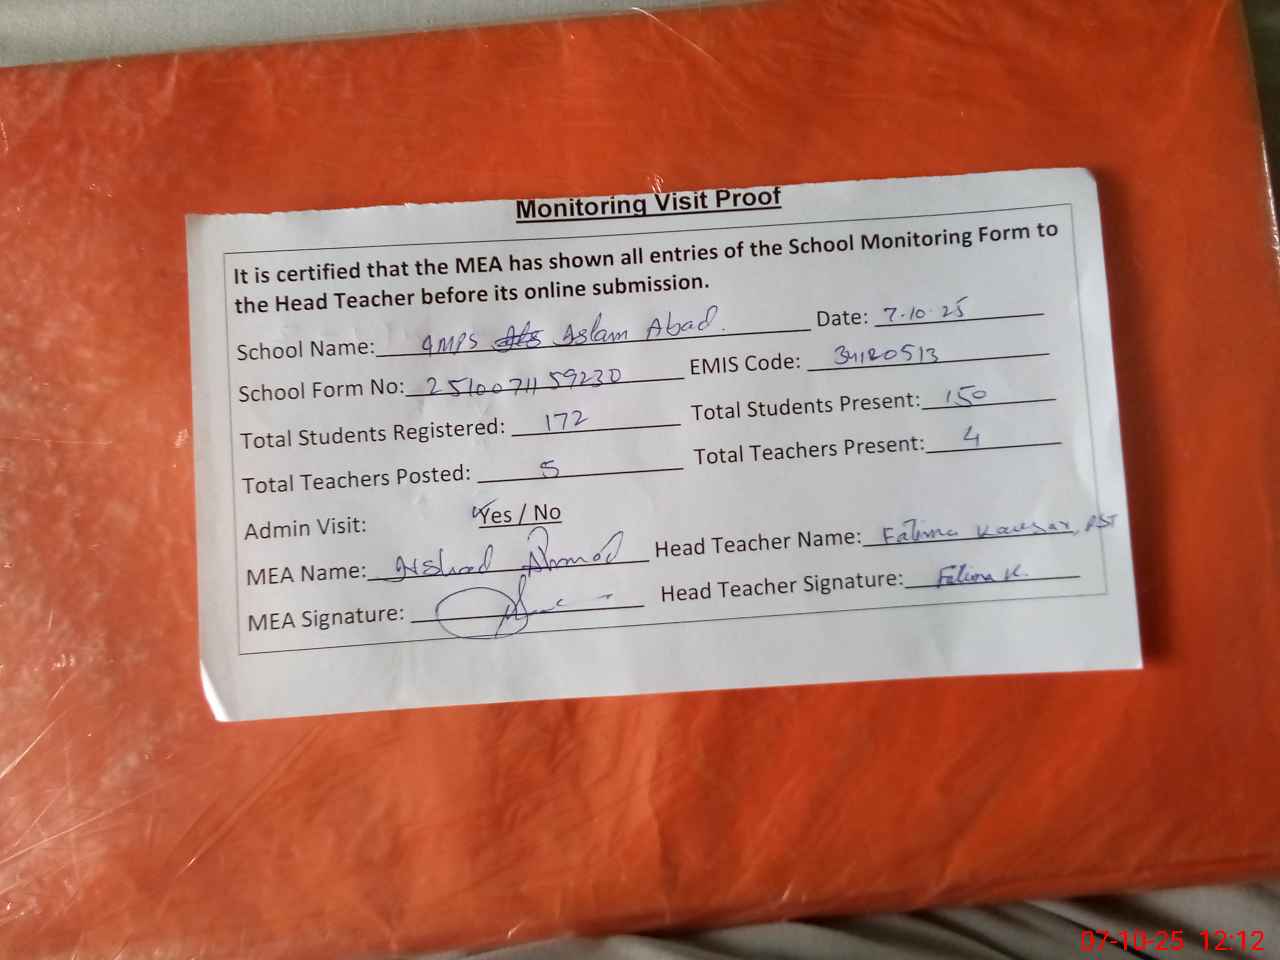 Monitoring Visit Proof
It is certified that the MEA has shown all entries of the School Monitoring Form to
the Head Teacher before its online submission.
School Name: GMPS Aslam Abad. Date: 7-10-25
School Form No: 25100711 59230 EMIS Code: 34120513
Total Students Registered: 172 Total Students Present: 150
Total Teachers Posted: 5 Total Teachers Present: 4
Admin Visit: Yes / No
MEA Name: Ahmad Head Teacher Name: Fatima Kausar, PST
MEA Signature: Head Teacher Signature: Fatima K.
07-10-25 12:12